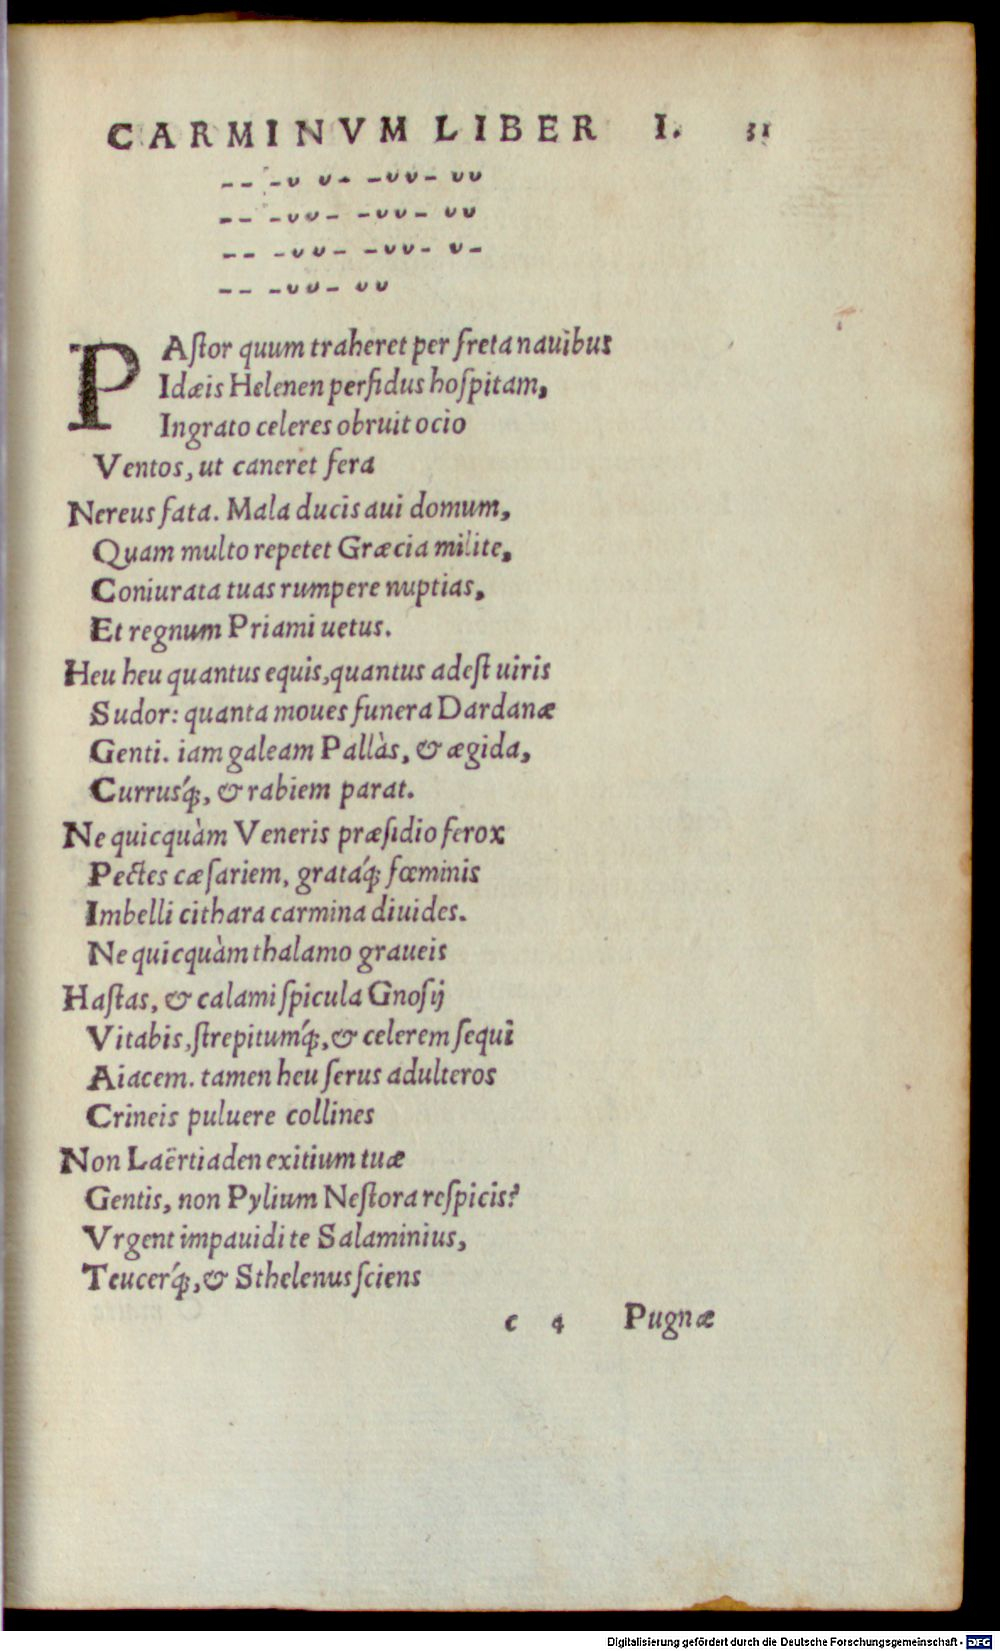 CARMINVM LIBER I. 31
-- -u u- -uu- uu
-- -uu- -uu- uu
-- -uu- -uu- u-
-- -uu- uu
PAſtor quum traheret per freta nauibus
Idæis Helenen perfidus hoſpitam,
Ingrato celeres obruit ocio
Ventos, ut caneret fera
Nereus fata. Mala ducis aui domum,
Quam multo repetet Græcia milite,
Coniurata tuas rumpere nuptias,
Et regnum Priami uetus.
Heu heu quantus equis, quantus adeſt uiris
Sudor: quanta moues funera Dardanæ
Genti. iam galeam Pallàs, & ægida,
Currusq́;, & rabiem parat.
Ne quicquàm Veneris præſidio ferox
Pectes cæſariem, gratáq́; fœminis
Imbelli cithara carmina diuides.
Ne quicquàm thalamo graueis
Haſtas, & calami ſpicula Gnoſij
Vitabis, ſtrepitumq́;, & celerem ſequi
Aiacem. tamen heu ſerus adulteros
Crineis puluere collines
Non Laërtiaden exitium tuæ
Gentis, non Pylium Neſtora reſpicis?
Vrgent impauidi te Salaminius,
Teucerq́;, & Sthelenus ſciens
c 4 Pugnæ
Digitalisierung gefördert durch die Deutsche Forschungsgemeinschaft - DFG